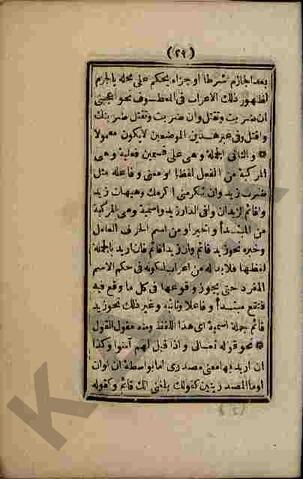 (٢٩)
بعد الجازم شرطا او جزاء يحكم على محله بالجزم
لظهور ذلك الاعراب فى المعطوف نحو اعجبنى
ان ضربت وتقتل وان ضربت وتقتل ضربتك
واقتل وفى غير هذين الموضعين لا يكون معمولا
والثانى الجملة وهى على قسمين فعلية وهى
المركبة من الفعل لفظا او معنى وفاعله مثل
ضرب زيد وان تكرمنى اكرمك وهيهات زيد
واقائم الزيدان وافى الدار زيد واسمية وهى المركبة
من المبتدأ والخبر او من اسم الحرف العامل
وخبره نحو زيد قائم وان زيدا قائم فان اريد بالجملة
لفظها فلا بد له من اعراب لكونه فى حكم الاسم
المفرد حتى يجوز وقوعها فى كل ما وقع فيه
فتقع مبتدأ وفاعلا ونائبه وغير ذلك نحو زيد
قائم جملة اسمية اى هذا اللفظ ومنه مقول القول
نحو قوله تعالى واذا قيل لهم آمنوا وكذا
ان اريد بها معنى مصدرى اما بواسطة ان او ان
او ما المصدريتين كقولك بلغنى انك قائم وكقوله